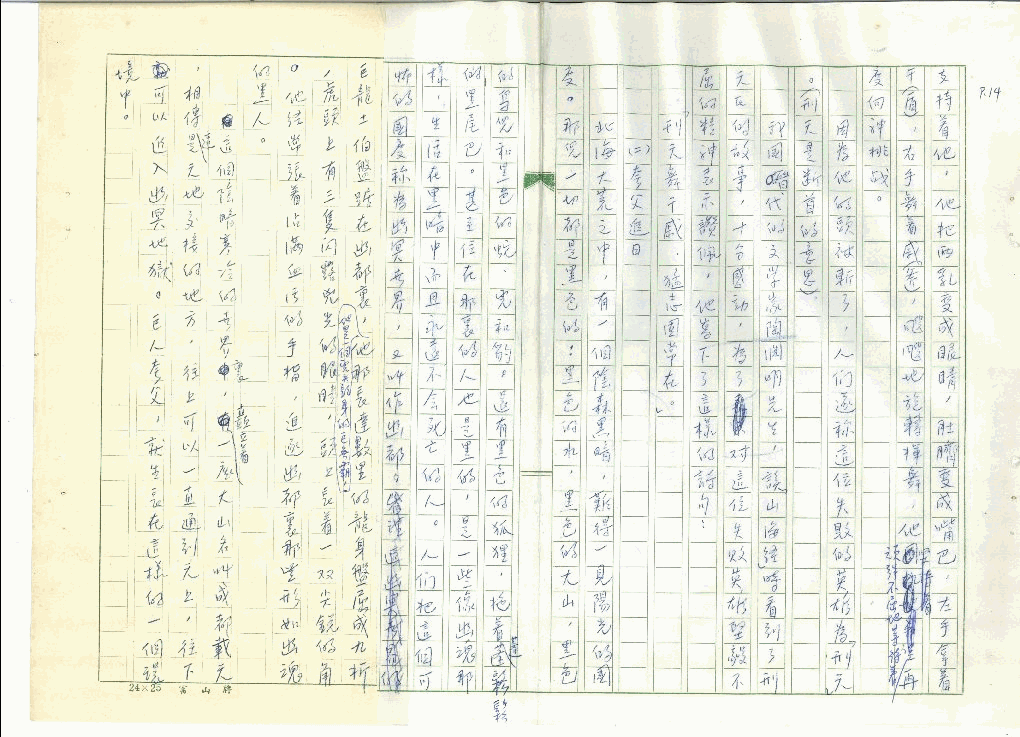 P.14
支持着他。他把兩乳變成眼睛,肚臍變成嘴巴,左手拿着
干(盾),右手舞着戚(斧),堅持着頑強不屈地掌持着再
度向神挑战。
因為他的頭被斬了,人們遂稱這位失敗的英雄為「刑天
」。(刑天是斷首的意思)
我國晉代的文學家陶淵明先生,談山海經時看到了刑
天的故事,十分感動,為了對這位失敗英雄堅毅不
屈的精神表示讚佩,他寫下了這樣的詩句:
「刑天舞干戚,猛志固常在。」
(二)夸父追日
北海大荒之中,有一個陰森黑暗,難得一見陽光的國
度。那兒一切都是黑色的:黑色的水,黑色的大山,黑色
的鳥兒和黑色的蛇,兕和豹。還有黑色的狐狸,拖着蓬鬆鬆
的黑尾巴。甚至住在那裏的人也是黑的,是一些像幽魂那
樣,生活在黑暗中而且永遠不會死亡的人。人們把這個可
怖的國度稱為幽冥世界,又叫作幽都。
巨龍土伯盤踞在幽都裏,他那長達數里的龍身盤屈成九折
,虎頭上有三隻閃露兇光的眼睛,頭上長着一双尖銳的角
。他經常張着沾滿血污的手指,追逐幽都裏那些形如幽魂
的黑人。
這個陰暗寒冷的世界裏,矗立着一座大山名叫成都載天
,相傳這是天地交接的地方,往上可以一直通到天上,往下
可以近入幽冥地獄。巨人夸父,就生長在這樣的一個環
境中。
24×25 富山牌